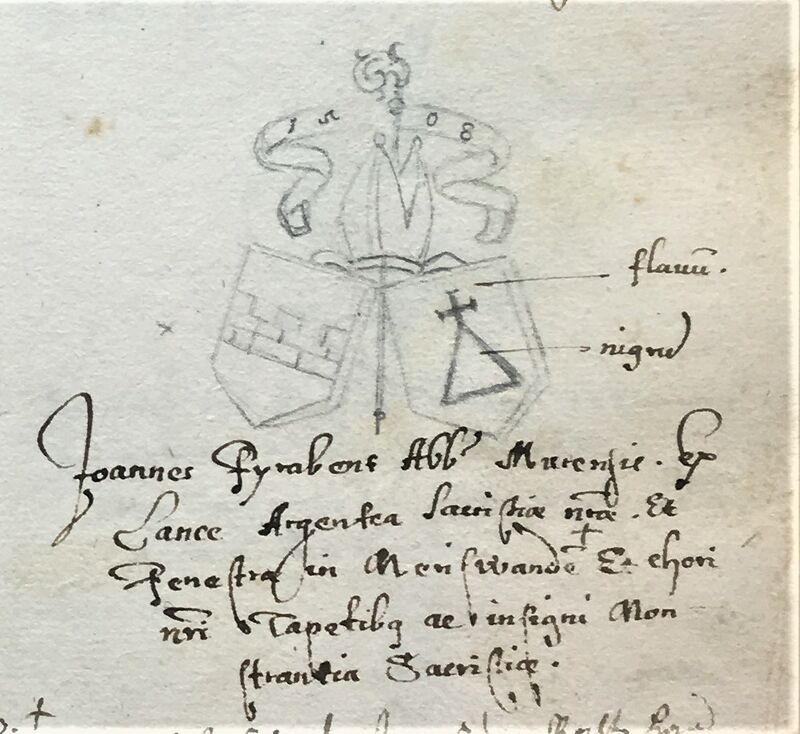 15 08
flauū.
nigrū
Joannes Fyrabent Abbs Murensis. Ex
Lance Argentea Sacristiæ nr̄æ. Et
Fenestra in Meriswandē Et chori
nr̄i Tapetibq ac insigni Mon
strantia Sacristiæ.